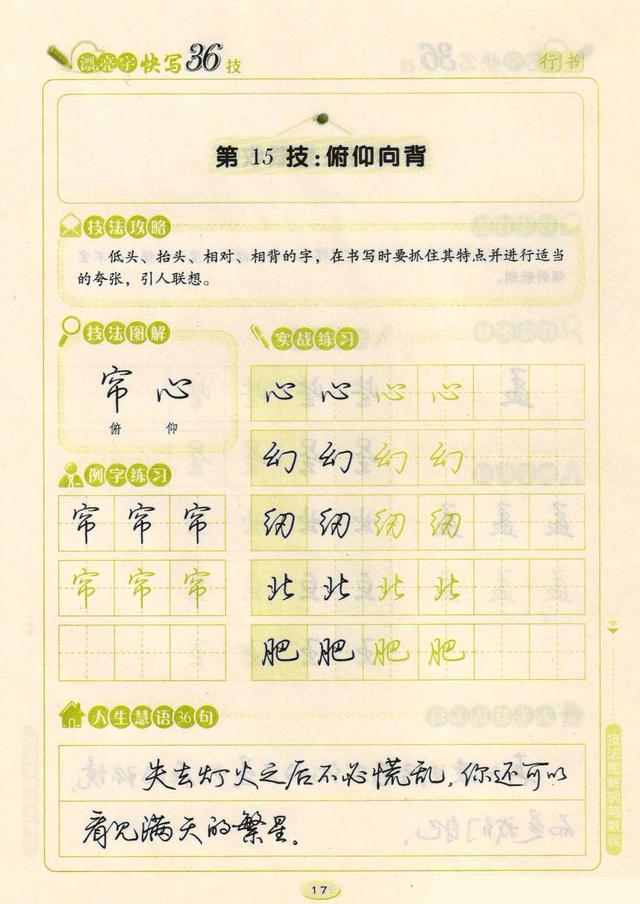 漂亮字快写36技
行书
第 15 技:俯仰向背
技法攻略
低头、抬头、相对、相背的字，在书写时要抓住其特点并进行适当
的夸张，引人联想。
技法图解
帘 心
俯 仰
例字练习
帘 帘 帘
帘 帘 帘
实战练习
心 心 心 心
幻 幻 幻 幻
纫 纫 纫 纫
北 北 北 北
肥 肥 肥 肥
人生慧语36句
失去灯火之后不必慌乱，你还可以
看见满天的繁星。
技法图解钢笔教程
17